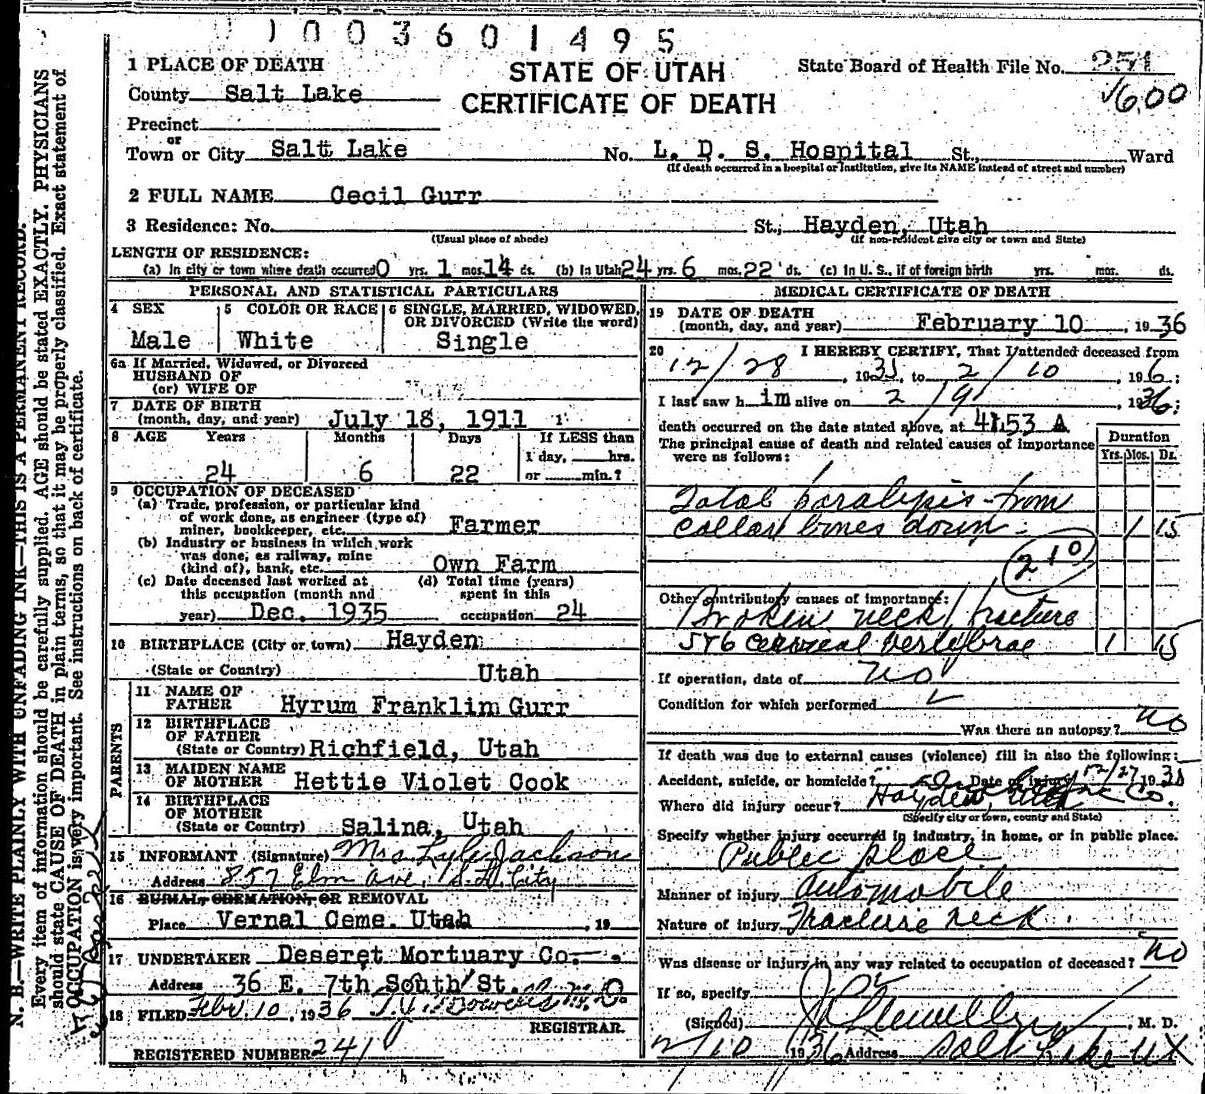 1003601495
1 PLACE OF DEATH
STATE OF UTAH
State Board of Health File No. 251
County Salt Lake
CERTIFICATE OF DEATH
1600
Precinct
or
Town or City Salt Lake No. L. D. S. Hospital St., Ward
(If death occurred in a hospital or institution, give its NAME instead of street and number)
2 FULL NAME Cecil Gurr
3 Residence: No. St., Hayden, Utah
(Usual place of abode) (If non-resident give city or town and State)
LENGTH OF RESIDENCE:
(a) In city or town where death occurred 0 yrs. 1 mos. 14 ds. (b) In Utah 24 yrs. 6 mos. 22 ds. (c) In U. S., if of foreign birth yrs. mos. ds.
PERSONAL AND STATISTICAL PARTICULARS
4 SEX
Male
5 COLOR OR RACE
White
6 SINGLE, MARRIED, WIDOWED,
OR DIVORCED (Write the word)
Single
6a If Married, Widowed, or Divorced
HUSBAND OF
(or) WIFE OF
7 DATE OF BIRTH
(month, day, and year) July 18, 1911
8 AGE Years Months Days If LESS than
1 day, hrs.
24 6 22 or min.?
9 OCCUPATION OF DECEASED
(a) Trade, profession, or particular kind
of work done, as engineer (type of)
miner, bookkeeper, etc. Farmer
(b) Industry or business in which work
was done, as railway, mine
(kind of), bank, etc. Own Farm
(c) Date deceased last worked at (d) Total time (years)
this occupation (month and spent in this
year) Dec. 1935 occupation 24
10 BIRTHPLACE (City or town) Hayden
(State or Country) Utah
PARENTS
11 NAME OF
FATHER Hyrum Franklin Gurr
12 BIRTHPLACE
OF FATHER
(State or Country) Richfield, Utah
13 MAIDEN NAME
OF MOTHER Hettie Violet Cook
14 BIRTHPLACE
OF MOTHER
(State or Country) Salina, Utah
15 INFORMANT (Signature) Mrs Lyle Jackson
Address 857 Elm Ave, S. L. City
16 BURIAL, CREMATION, OR REMOVAL
Place Vernal Ceme. Utah , 19
17 UNDERTAKER Deseret Mortuary Co.
Address 36 E. 7th South St.
18 FILED Feb. 10, 1936
REGISTRAR.
REGISTERED NUMBER 241
MEDICAL CERTIFICATE OF DEATH
19 DATE OF DEATH
(month, day, and year) February 10 , 1936
20 I HEREBY CERTIFY, That I attended deceased from
12/28 , 1935, to 2/10 , 1936;
I last saw h im alive on 2/9 , 1936;
death occurred on the date stated above, at 4:53 A
The principal cause of death and related causes of importance
were as follows:
Duration
Yrs. Mos. Ds.
Total paralysis from
collar bones down 1 15
210
Other contributory causes of importance:
Broken neck / fracture
5 & 6 cervical vertebrae 1 15
If operation, date of no
Condition for which performed
Was there an autopsy? no
If death was due to external causes (violence) fill in also the following:
Accident, suicide, or homicide? Date of injury 12/27 1935
Where did injury occur? Hayden, Utah Co.
(Specify city or town, county and State)
Specify whether injury occurred in industry, in home, or in public place.
Public place
Manner of injury Automobile
Nature of injury Fracture neck
Was disease or injury in any way related to occupation of deceased? no
If so, specify
(Signed) , M. D.
2/10 1936 Address Salt Lake
N. B.—WRITE PLAINLY WITH UNFADING INK—THIS IS A PERMANENT RECORD.
Every item of information should be carefully supplied. AGE should be stated EXACTLY. PHYSICIANS
should state CAUSE OF DEATH in plain terms, so that it may be properly classified. Exact statement of
OCCUPATION is very important. See instructions on back of certificate.